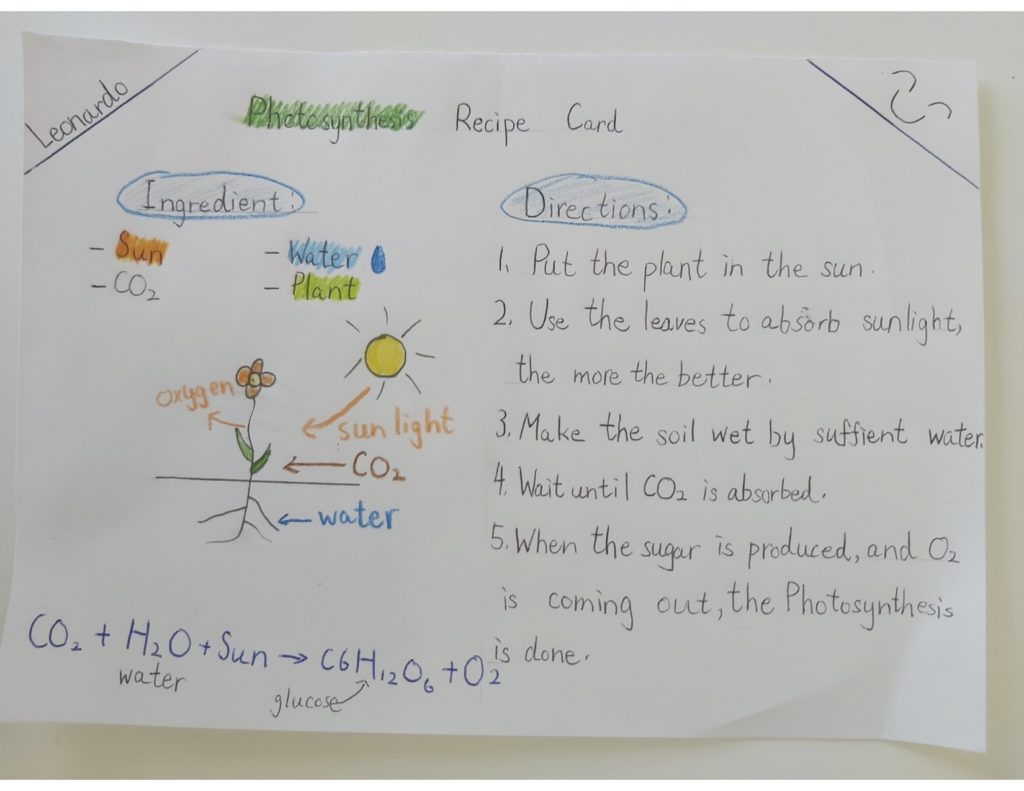 Leonardo
Photosynthesis Recipe Card
Ingredient:
- Sun
- CO₂
- Water
- Plant
oxygen
sunlight
CO₂
water
CO₂ + H₂O + Sun → C6H₁₂O₆ + O₂
water
glucose
Directions:
1. Put the plant in the sun.
2. Use the leaves to absorb sunlight,
the more the better.
3. Make the soil wet by suffient water.
4. Wait until CO₂ is absorbed.
5. When the sugar is produced, and O₂
is coming out, the Photosynthesis
is done.